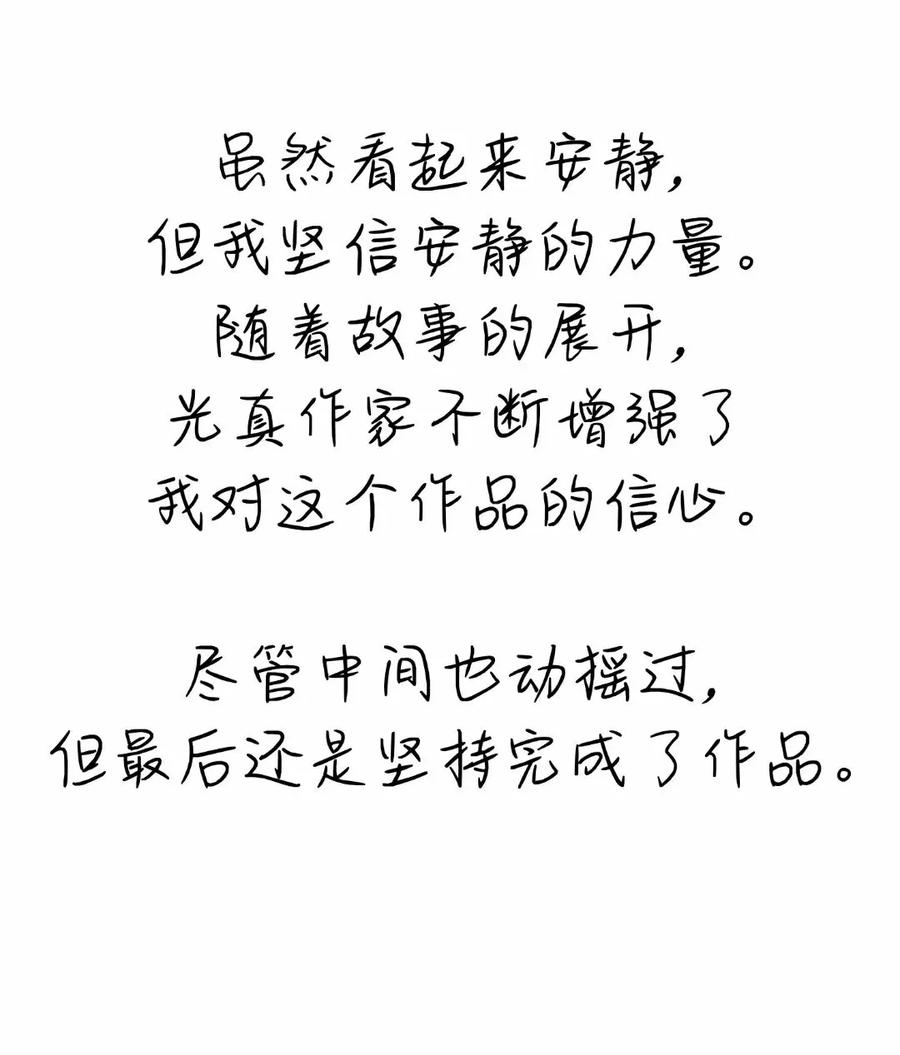 虽然看起来安静，
但我坚信安静的力量。
随着故事的展开，
光真作家不断增强了
我对这个作品的信心。
尽管中间也动摇过，
但最后还是坚持完成了作品。